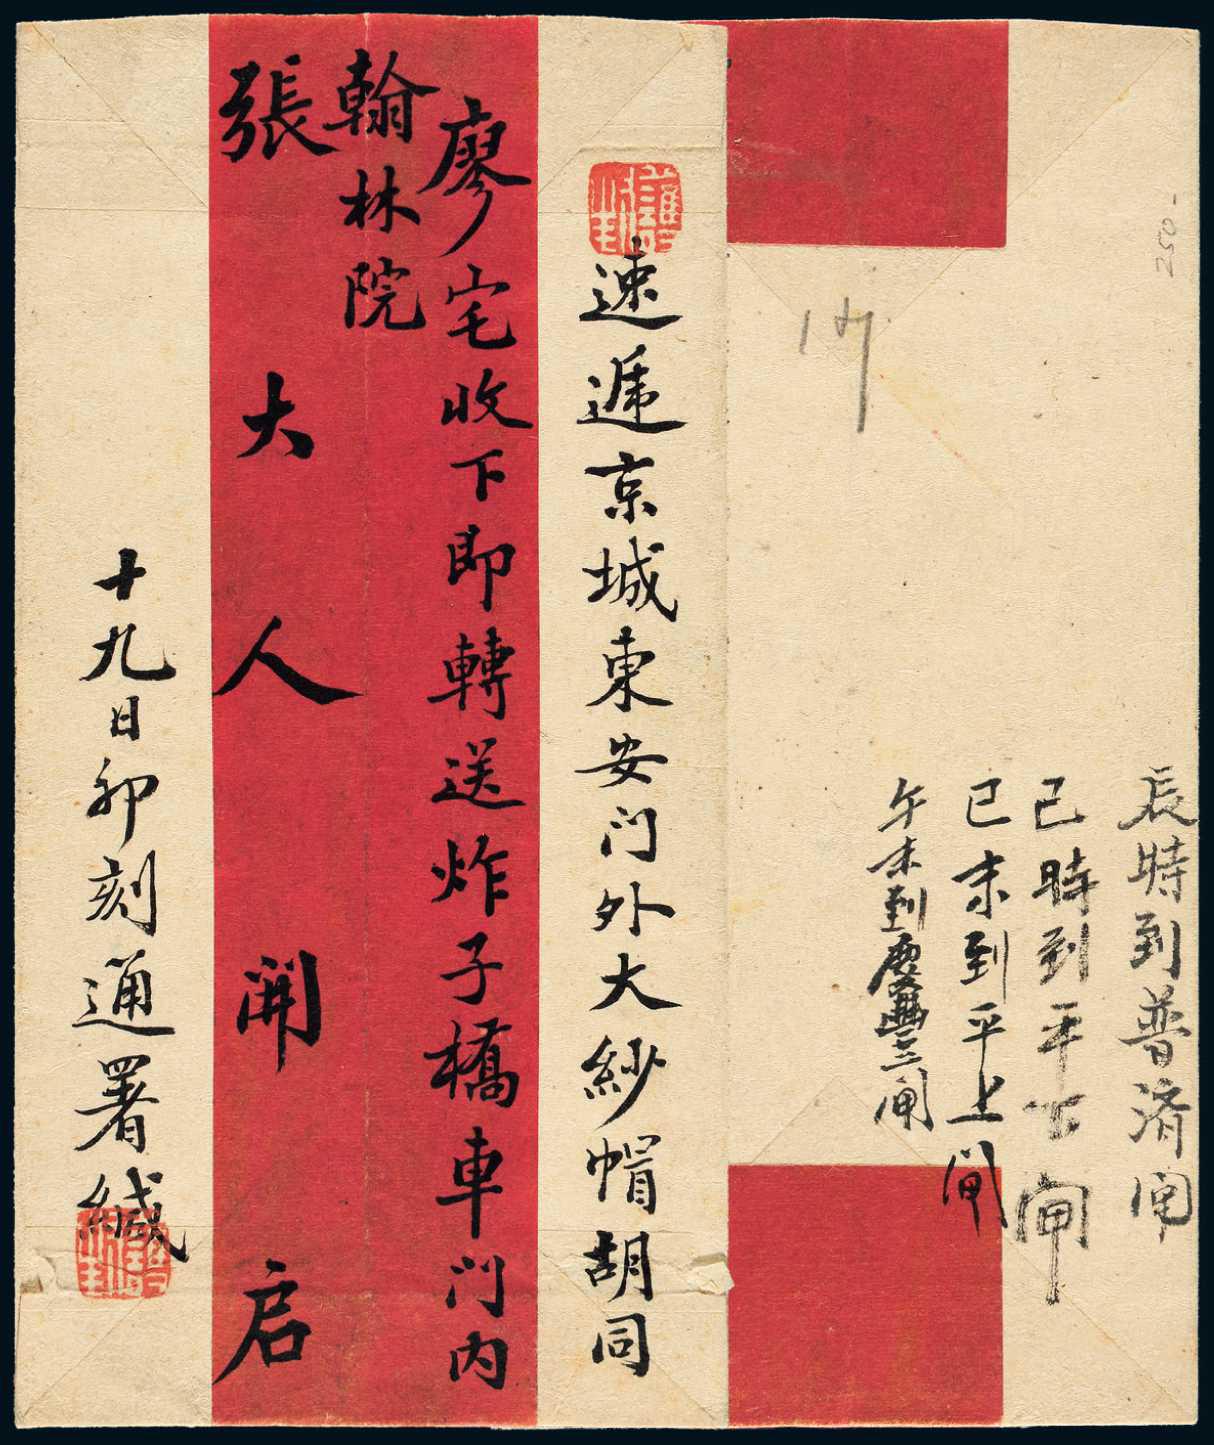 250-
辰時到普済闸
己時到平下闸
已末到平上闸
午末到慶豐三闸
速遞京城東安门外大紗帽胡同
廖宅收下即轉送炸子橋車门内
翰林院
張大人開启
十九日卯刻通署緘